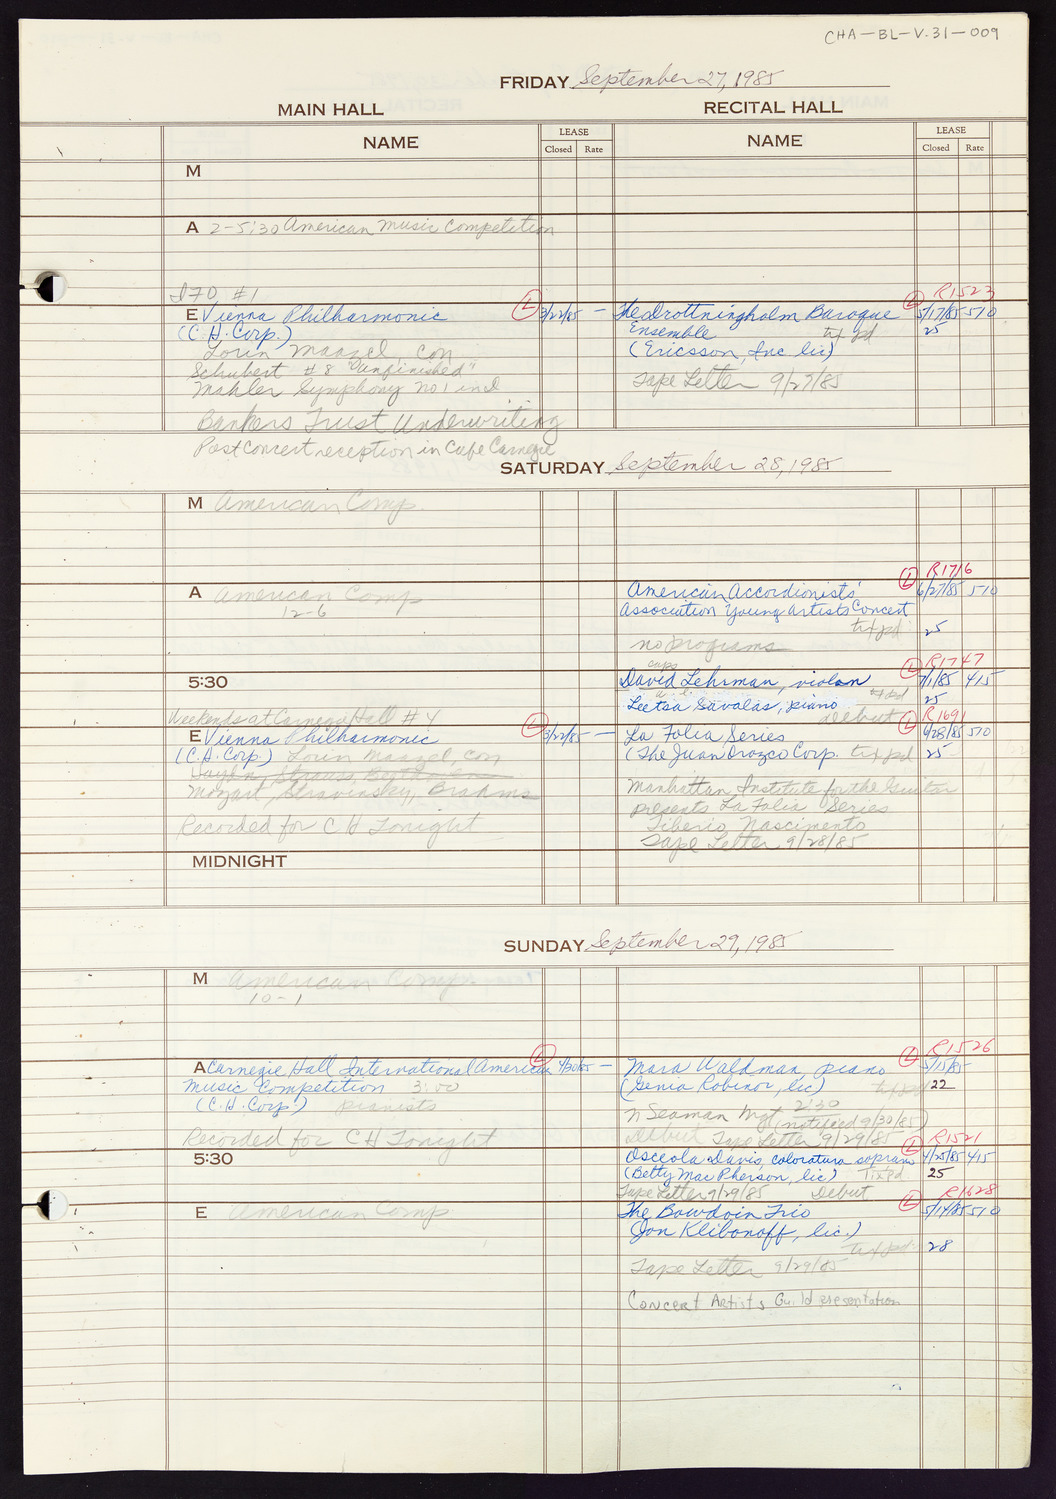 CHA-BL-V.31-009
FRIDAY September 27, 1985
MAIN HALL
RECITAL HALL
NAME
LEASE
Closed Rate
NAME
LEASE
Closed Rate
M
A 2-5:30 American Music Competition
#1
E Vienna Philharmonic L 3/22/85 —
(C.H. Corp.)
Lorin Maazel, con
Schubert #8 "Unfinished"
Mahler Symphony No 1 in d
Bankers Trust Underwriting
Post concert reception in Cafe Carnegie
L R1523
The Drottningholm Baroque 5/17/85 510
Ensemble tix pd 25
(Ericsson, Inc lic)
Tape Letter 9/27/85
SATURDAY September 28, 1985
M American Comp.
A American Comp
12-6
L R1716
American Accordionists' 6/27/85 510
Association Young Artists Concert
tix pd 25
no programs
5:30
L R1747
David Lehrman, violon 7/1/85 415
tix pd 25
Leetsa Savalas, piano
Debut
Weekends at Carnegie Hall #4
E Vienna Philharmonic L 3/22/85 —
(C.H. Corp.) Lorin Maazel, con
Haydn, Strauss, Beethoven
Mozart, Stravinsky, Brahms
Recorded for CH Tonight
L R1691
La Folia Series 6/28/85 510
(The Juan Orozco Corp. tix pd 25
Manhattan Institute for the Guitar
presents La Folia Series
Tiberio Nascimento
Tape Letter 9/28/85
MIDNIGHT
SUNDAY September 29, 1985
M American Comp.
10-1
A Carnegie Hall International American L 4/30/85 —
Music Competition 3:00
(C.H. Corp.) pianists
Recorded for CH Tonight
L R1526
Mara Waldman, piano 5/15/85
(Genia Robinor, lic) tix pd 22
N Seaman Mgt 2:30
(notified 9/30/85)
Debut Tape Letter 9/29/85
5:30
L R1521
Osceola Davis, coloratura soprano 4/25/85 415
(Betty MacPherson, lic) Tix pd 25
Tape Letter 9/29/85 Debut
E American Comp
L R1628
The Bowdoin Trio 5/14/85 510
(Jon Klibonoff, lic.)
tix pd 28
Tape Letter 9/29/85
Concert Artists Guild presentation